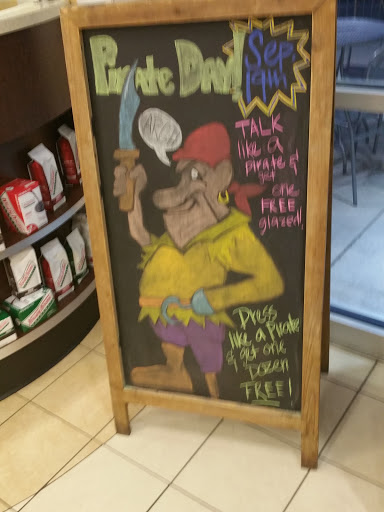 Pirate Day!
Sep
19th
TALK
like a
pirate &
get
one
FREE
glazed!
Dress
like a Pirate
& get one
Dozen
FREE!